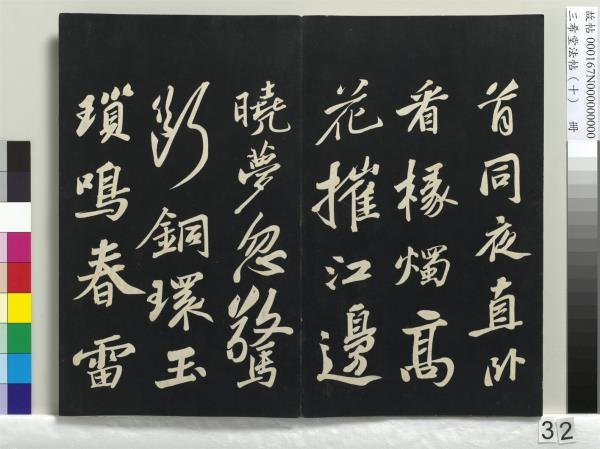 首同夜直卧
看椽燭高
花摧江邊
曉夢忽驚
斷銅環玉
瑣鳴春雷
故帖 000167N000000000
三希堂法帖（十） 冊
32